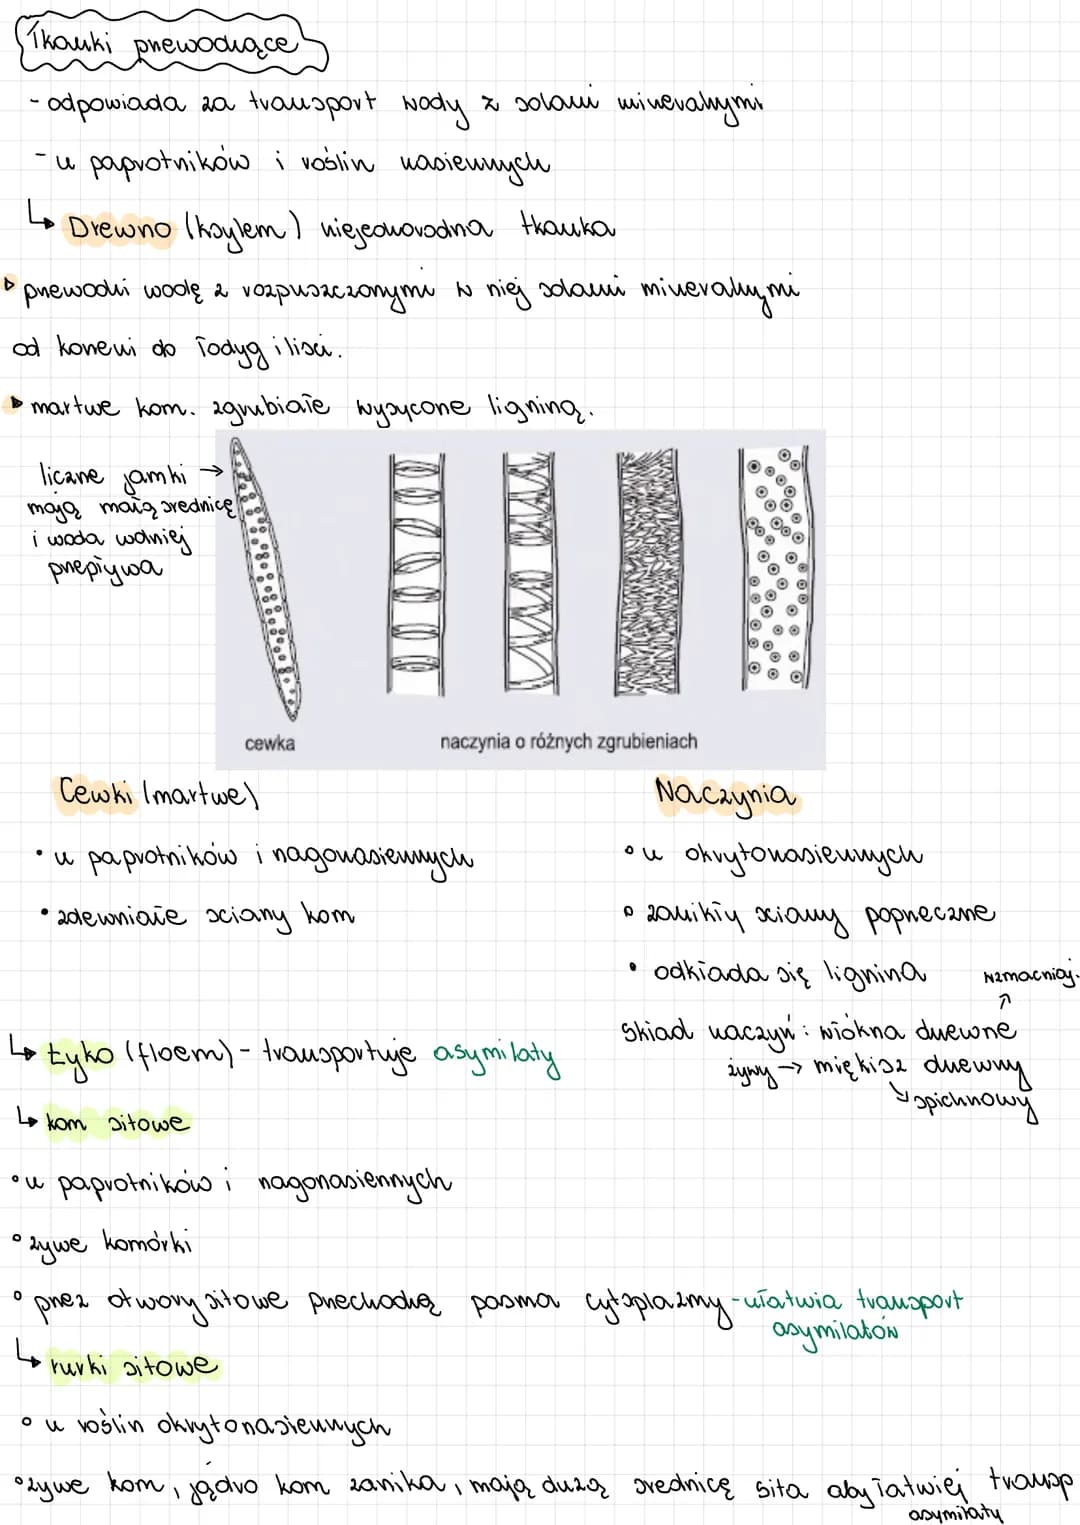 Tkanki przewodzące
- odpowiada za transport wody z solami mineralnymi
- u paprotników i roślin nasiennych
↳ Drewno (ksylem) niejednorodna tkanka
▸ przewodzi wodę z rozpuszczonymi w niej solami mineralnymi
od korzeni do łodyg i liści.
▸ martwe kom. zgrubiałe wysycone ligniną.
liczne jamki →
mają małą średnicę
i woda wolniej
przepływa
cewka
naczynia o różnych zgrubieniach
Cewki (martwe)
• u paprotników i nagonasiennych
• zdewniałe sciany kom
Naczynia
• u okrytonasiennych
• zanikły ściany poprzeczne
• odkłada się lignina
wzmacniaj.
↗
Skład naczyń: włókna drzewne
żywy → miękisz drzewny
↘ spichrzowy
↳ Łyko (floem) - transportuje asymilaty
↳ kom sitowe
• u paprotników i nagonasiennych
• żywe komórki
• przez otwory sitowe przechodzą pasma cytoplazmy - ułatwia transport
asymilatów
↳ rurki sitowe
• u roślin okrytonasiennych
• żywe kom, jądro kom zanika, mają dużą średnicę sita aby łatwiej transp
asymilaty